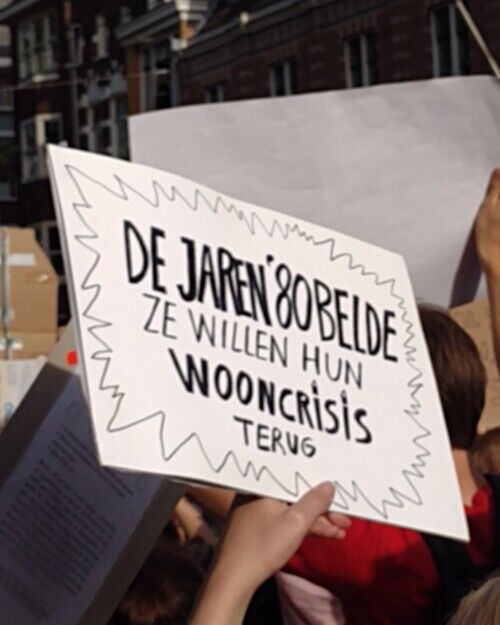 DE JAREN '80 BELDE
ZE WILLEN HUN
WOONCRISIS
TERUG